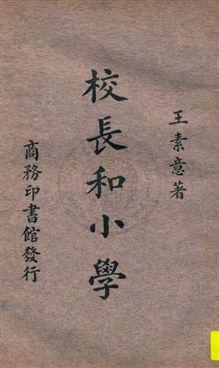 王素意著
校長和小學
商務印書館發行